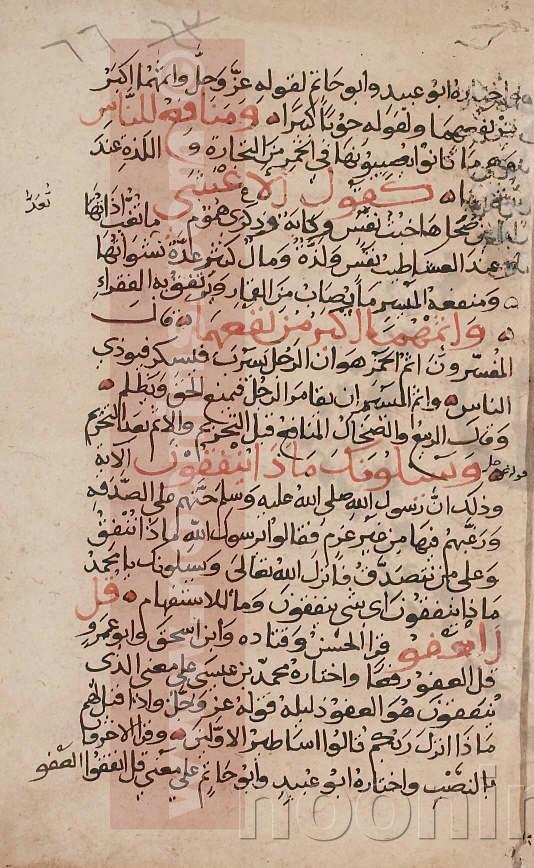 واختاره ابو عبيد وابو حاتم لقوله عز وجل واثمهما اكبر
من نفعهما ولقوله حوبا كبيرا ومنافع للناس
وهو ما كانوا يصيبونها في الخمر من التجارة واللذة عند
شربها كقول الاعشى
لنا من ضحاها خبث نفس وكأبة وذكرى هموم ما تغب اذاتها
تغب
وعند العشا طيب نفس ولذة ومال كثير عدة نشواتها
ومنفعة الميسر ما يصاب من القمار ويرتفق به الفقراء
واثمهما اكبر من نفعهما قال
المفسرون اثم الخمر هو ان الرجل يشرب فيسكر فيوذي
الناس واثم الميسر ان يقامر الرجل فيمنع الحق ويظلم
وقال الربيع والضحاك المنافع قبل التحريم والاثم بعد التحريم
قوله عز وجل ويسلونك ماذا ينفقون الاية
وذلك ان رسول الله صلى الله عليه وسلم حثهم على الصدقه
ورغبهم فيها من غير عزم فقالوا يرسول الله ماذا ننفق
وعلى من نتصدق فانزل الله تعالى ويسلونك يا محمد
ماذا ينفقون اي شي ينفقون وما للاستفهام قل
العفو قرا الحسن وقتاده وابن اسحق وابو عمرو
قل العفو رفعا واختاره محمد بن عيسى على معنى الذي
ينفقون هو العفو دليله قوله عز وجل واذا قيل لهم
ماذا انزل ربكم قالوا اساطير الاولين وقرا الاخرون
بالنصب واختاره ابو عبيد وابو حاتم على معنى قل انفقوا العفو
noonin